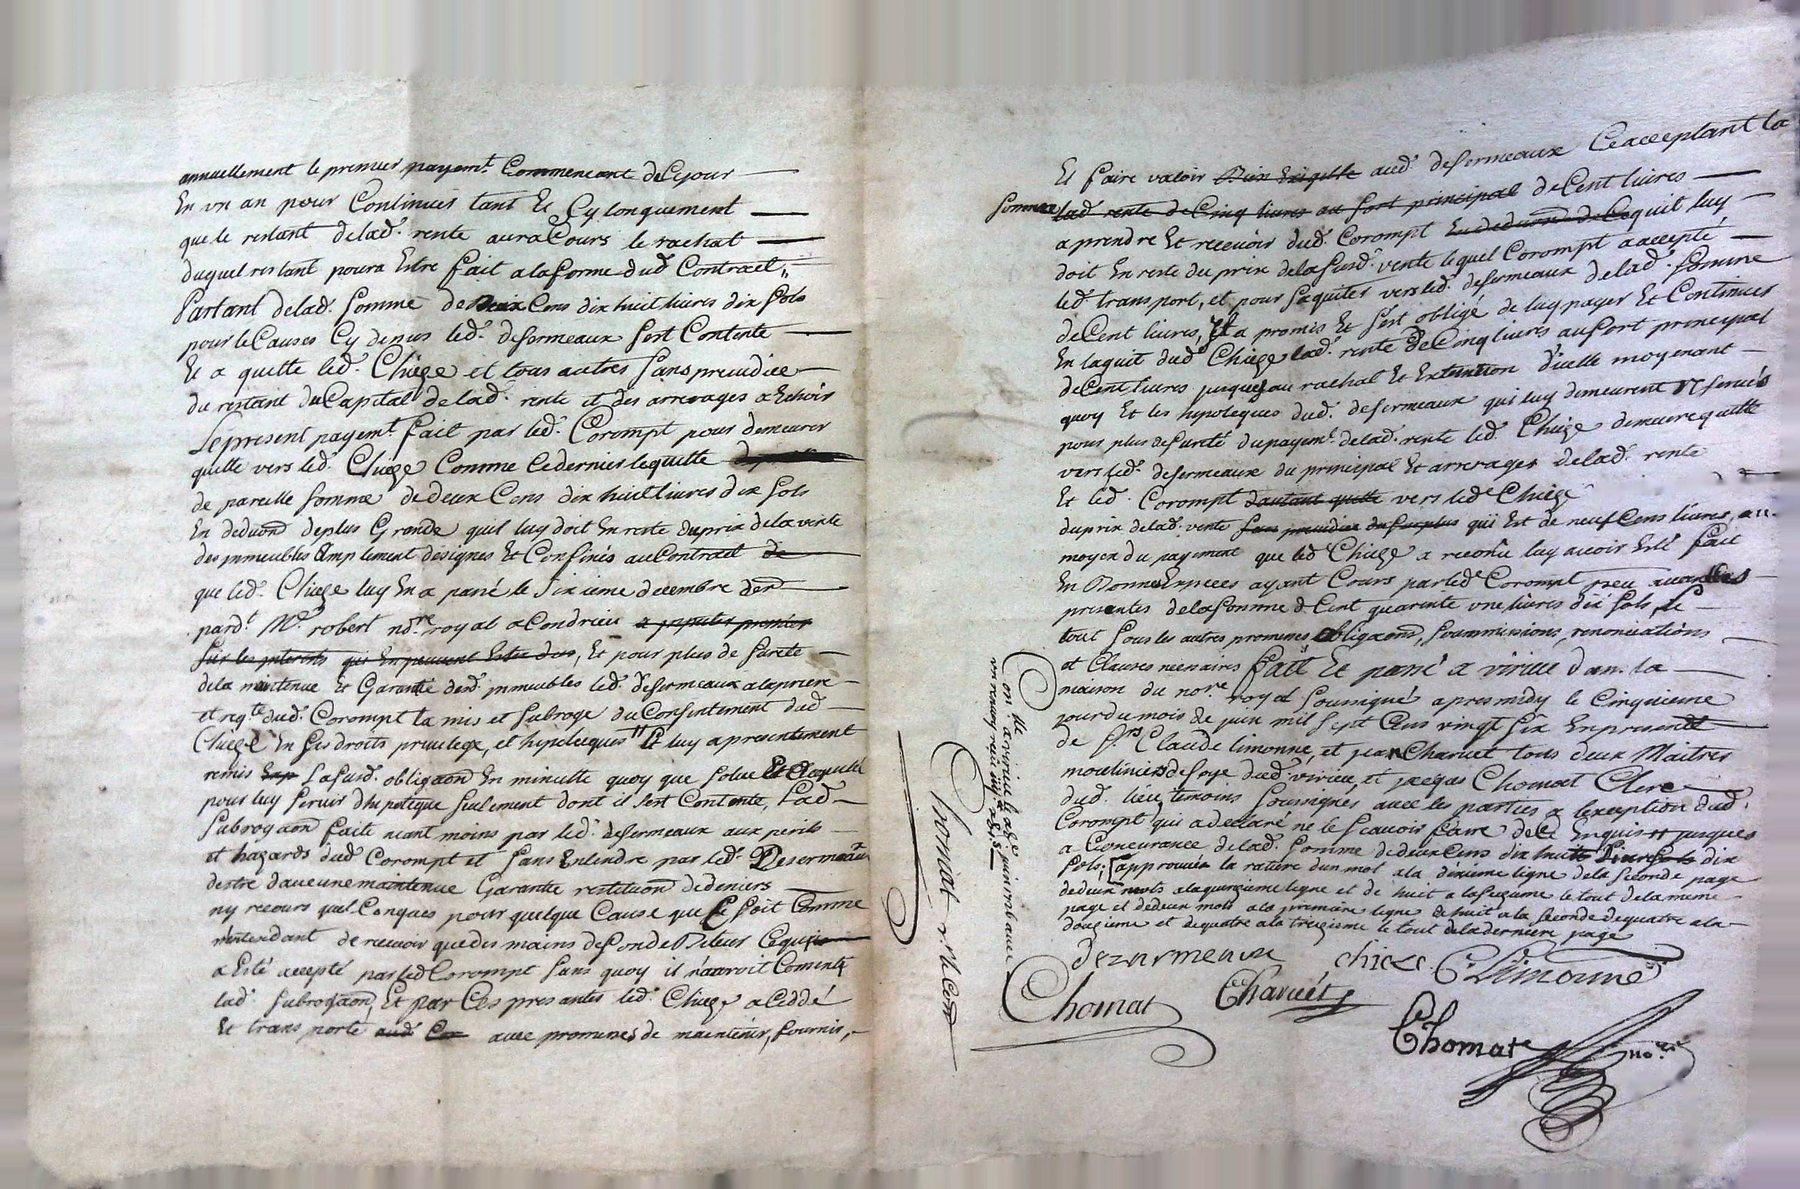 annuellement le premier payemt. Commencant de Cejour
En un an pour Continuer tant Et Cy longuement
que le restant delad. rente aura Cours le rachat
duquel restant poura Estre fait a la forme dud. Contract,
Partant delad. somme de deux Cens dix huit livres dix sols
pour le Causes Cy dessus led. desormeaux sest Contenté
Et a quitté led. Chieze et tous autres sans prejudice
du restant du Capital de lad. rente et des arrerages a Echoir
Le present payemt. fait par led. Corompt pour demeurer
quitte vers led. Chieze Comme ce dernier le quitte
de pareille somme de deux Cens dix huit livres dix sols
En deduon. de plus Grande quil luy doit En reste du prix de la vente
des immeubles Amplement designés Et Confinés au Contract de
que led. Chieze luy En a passé le sixieme decembre der.
pardt. Me. robert nore. royal a Condrieu a
sur les interets qui En peuvent Estre dus, Et pour plus de sureté
de la maintenue Et Garantie desd. immeubles led. desormeaux a la priere
et reqte. dud. Corompt la mis et subrogé du Consentement dud.
Chieze En ses droits privilege, et hipoteques Et luy a presentement
remis lasusd. obligaon. En minutte quoy que solue Et
pour luy servir dhipoteque seulement dont il sest Contenté, Lad.
subrogaon. faite neant moins par led. desormeaux aux perils
et hazards dud. Corompt et sans Entendre par led. Desormeaux
destre daucune maintenue Garantie restitution de deniers
ny recours quelConques pour quelque Cause que Ce soit Comme
nentendant de recevoir que des mains de son debiteur Cequi
a Esté accepté par led. Corompt sans quoy il nauroit Consenti
lad. subrogaon., Et par Ces presentes led. Chieze a Ceddé
Et transporté aud. Cor avec promesses de maintenir, fournir,
Et faire valoir aud. desormeaux Ce acceptant la
somme lad. rente de Cinq livres au sort principal de Cent livres
a prendre Et recevoir dud. Corompt En deduon. de Ce quil luy
doit En reste du prix de la susd. vente lequel Corompt a accepté
led. transport, et pour saquiter vers led. desormeaux de lad. somme
de Cent livres, Il a promis Et sest obligé de luy payer Et Continuer
En laquit dud. Chieze lad. rente de Cinq livres au sort principal
de Cent livres jusques au rachat Et Extinction dicelle moyenant
quoy Et les hipoteques dud. desormeaux qui luy demeurent reservés
pour plus de sureté du payemt. delad. rente led. Chieze demeure quitte
vers led. desormeaux du principal Et arrerages de lad. rente
Et led. Corompt dautant quitte vers led. Chieze
du prix delad. vente sans prejudice du surplus qui Est de neuf Cens livres au
moyen du payement que led. Chieze a reconu luy avoir Esté fait
En Bonnes Especes ayant Cours par led. Corompt peu avant les
presentes de la somme de Cent quarente une livres dix sols, Le
tout sous les autres promesses obligaons., soummissions, renonciations
et Clauses necessaires fait Et passé a virieu dans la
maison du nore. royal soussigné apres midy le Cinquieme
jour du mois de juin mil sept Cens vingt six En presence
de srs. Claude limonne, et jean Charvet tous deux Maitres
mouliniers de soye dud. virieu, et jacques Chomat Clerc
dud. lieu, temoins soussignés avec les parties a lexception dud.
Corompt qui a declaré ne le scavoir faire de Ce Enquis Et jusques
a Concurance de lad. somme de deux Cens dix huit livres dix
sols, approuvés la rature dun mot a la dixieme ligne de la seconde page
de deux mots a la quinzieme ligne et de huit a la seizieme le tout de la meme
page et de deux mots a la premiere ligne de huit a la seconde de quatre a la
douzieme et de quatre a la treizieme le tout de la derniere page
dezarmeaux chieze C. Limonne
Chomat Charvet
Chomat nore.
Chomat